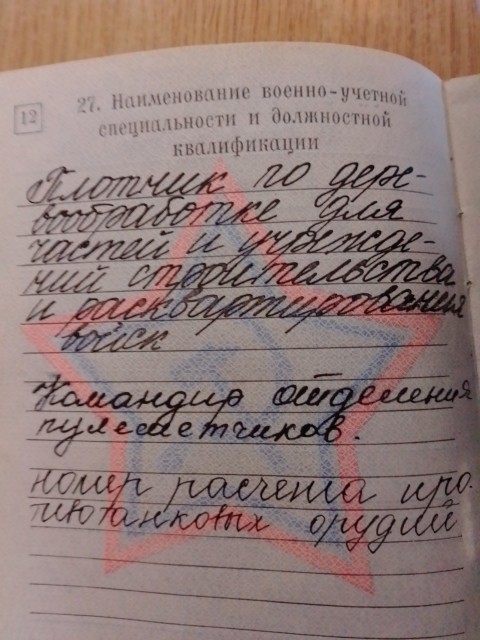 12
27. Наименование военно-учетной
специальности и должностной
квалификации
Плотчик по дере-
вообработке для
частей и учрежде-
ний строительства
и расквартирования
войск
Командир отделения
пулеметчиков.
номер расчета про-
тивотанковых орудий